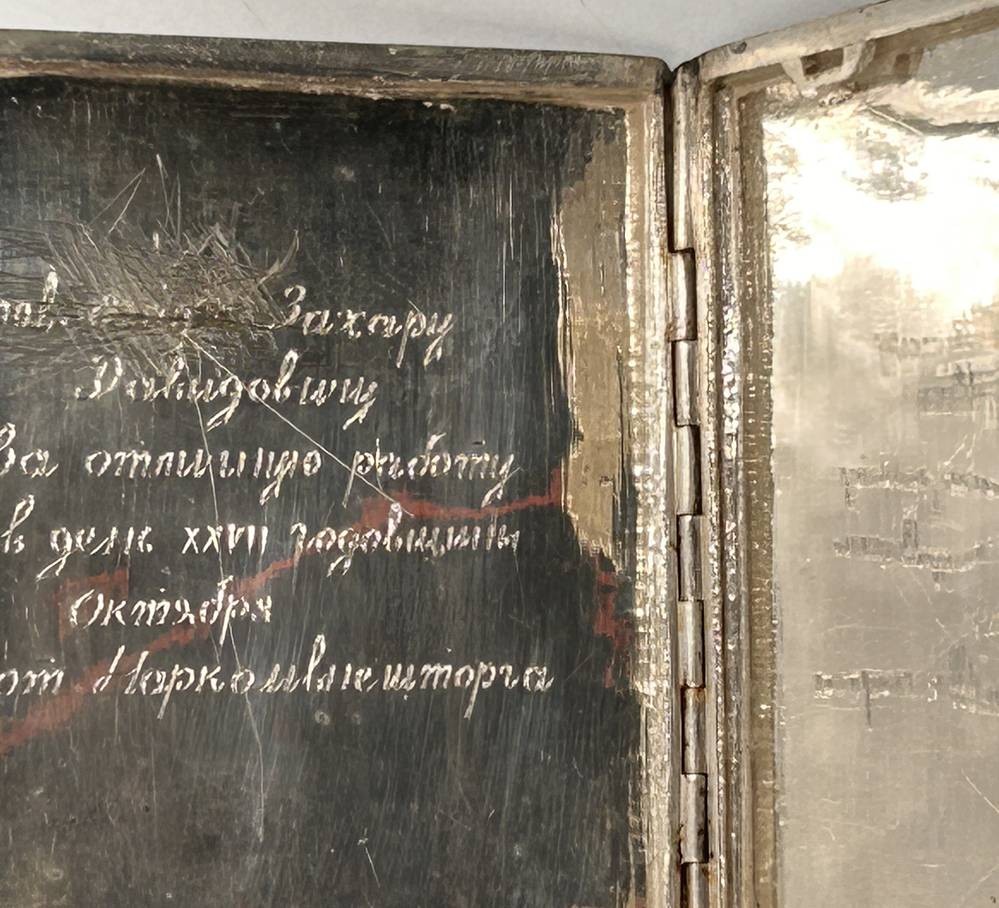 Захару
Давидовичу
за отличную работу
в деле XXVII годовщины
Октября
от Наркомвнешторга